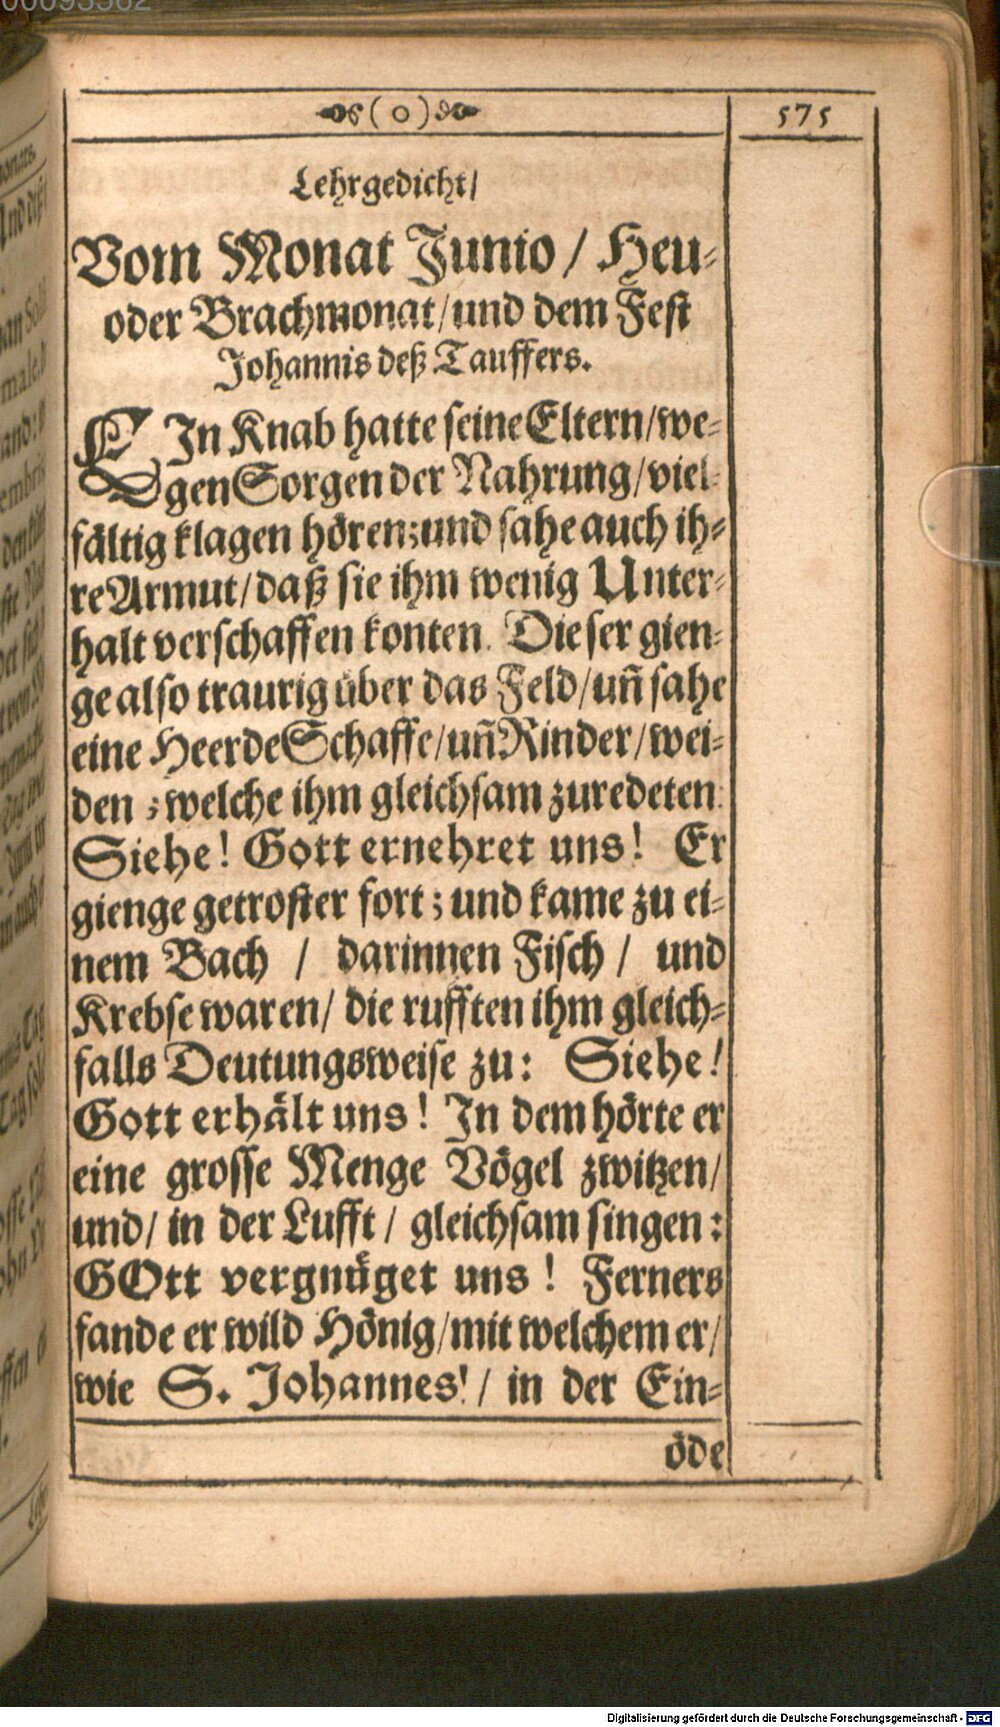 ( o )
575
Lehrgedicht/
Vom Monat Junio / Heu-
oder Brachmonat/und dem Fest
Johannis deß Tauffers.
EIn Knab hatte seine Eltern/we-
gen Sorgen der Nahrung/viel-
fältig klagen hören; und sahe auch ih-
re Armut/ daß sie ihm wenig Unter-
halt verschaffen konten. Dieser gien-
ge also traurig über das Feld/ uñ sahe
eine Heerde Schaffe/ uñ Rinder/ wei-
den ; welche ihm gleichsam zuredeten:
Siehe! Gott ernehret uns! Er
gienge getroster fort ; und kame zu ei-
nem Bach / darinnen Fisch / und
Krebse waren/ die rufften ihm gleich-
falls Deutungsweise zu: Siehe!
Gott erhält uns! In dem hörte er
eine grosse Menge Vögel zwitzen/
und/ in der Lufft / gleichsam singen:
GOtt vergnüget uns! Ferners
fande er wild Hönig/ mit welchem er/
wie S. Johannes! / in der Ein-
öde
Digitalisierung gefördert durch die Deutsche Forschungsgemeinschaft - DFG